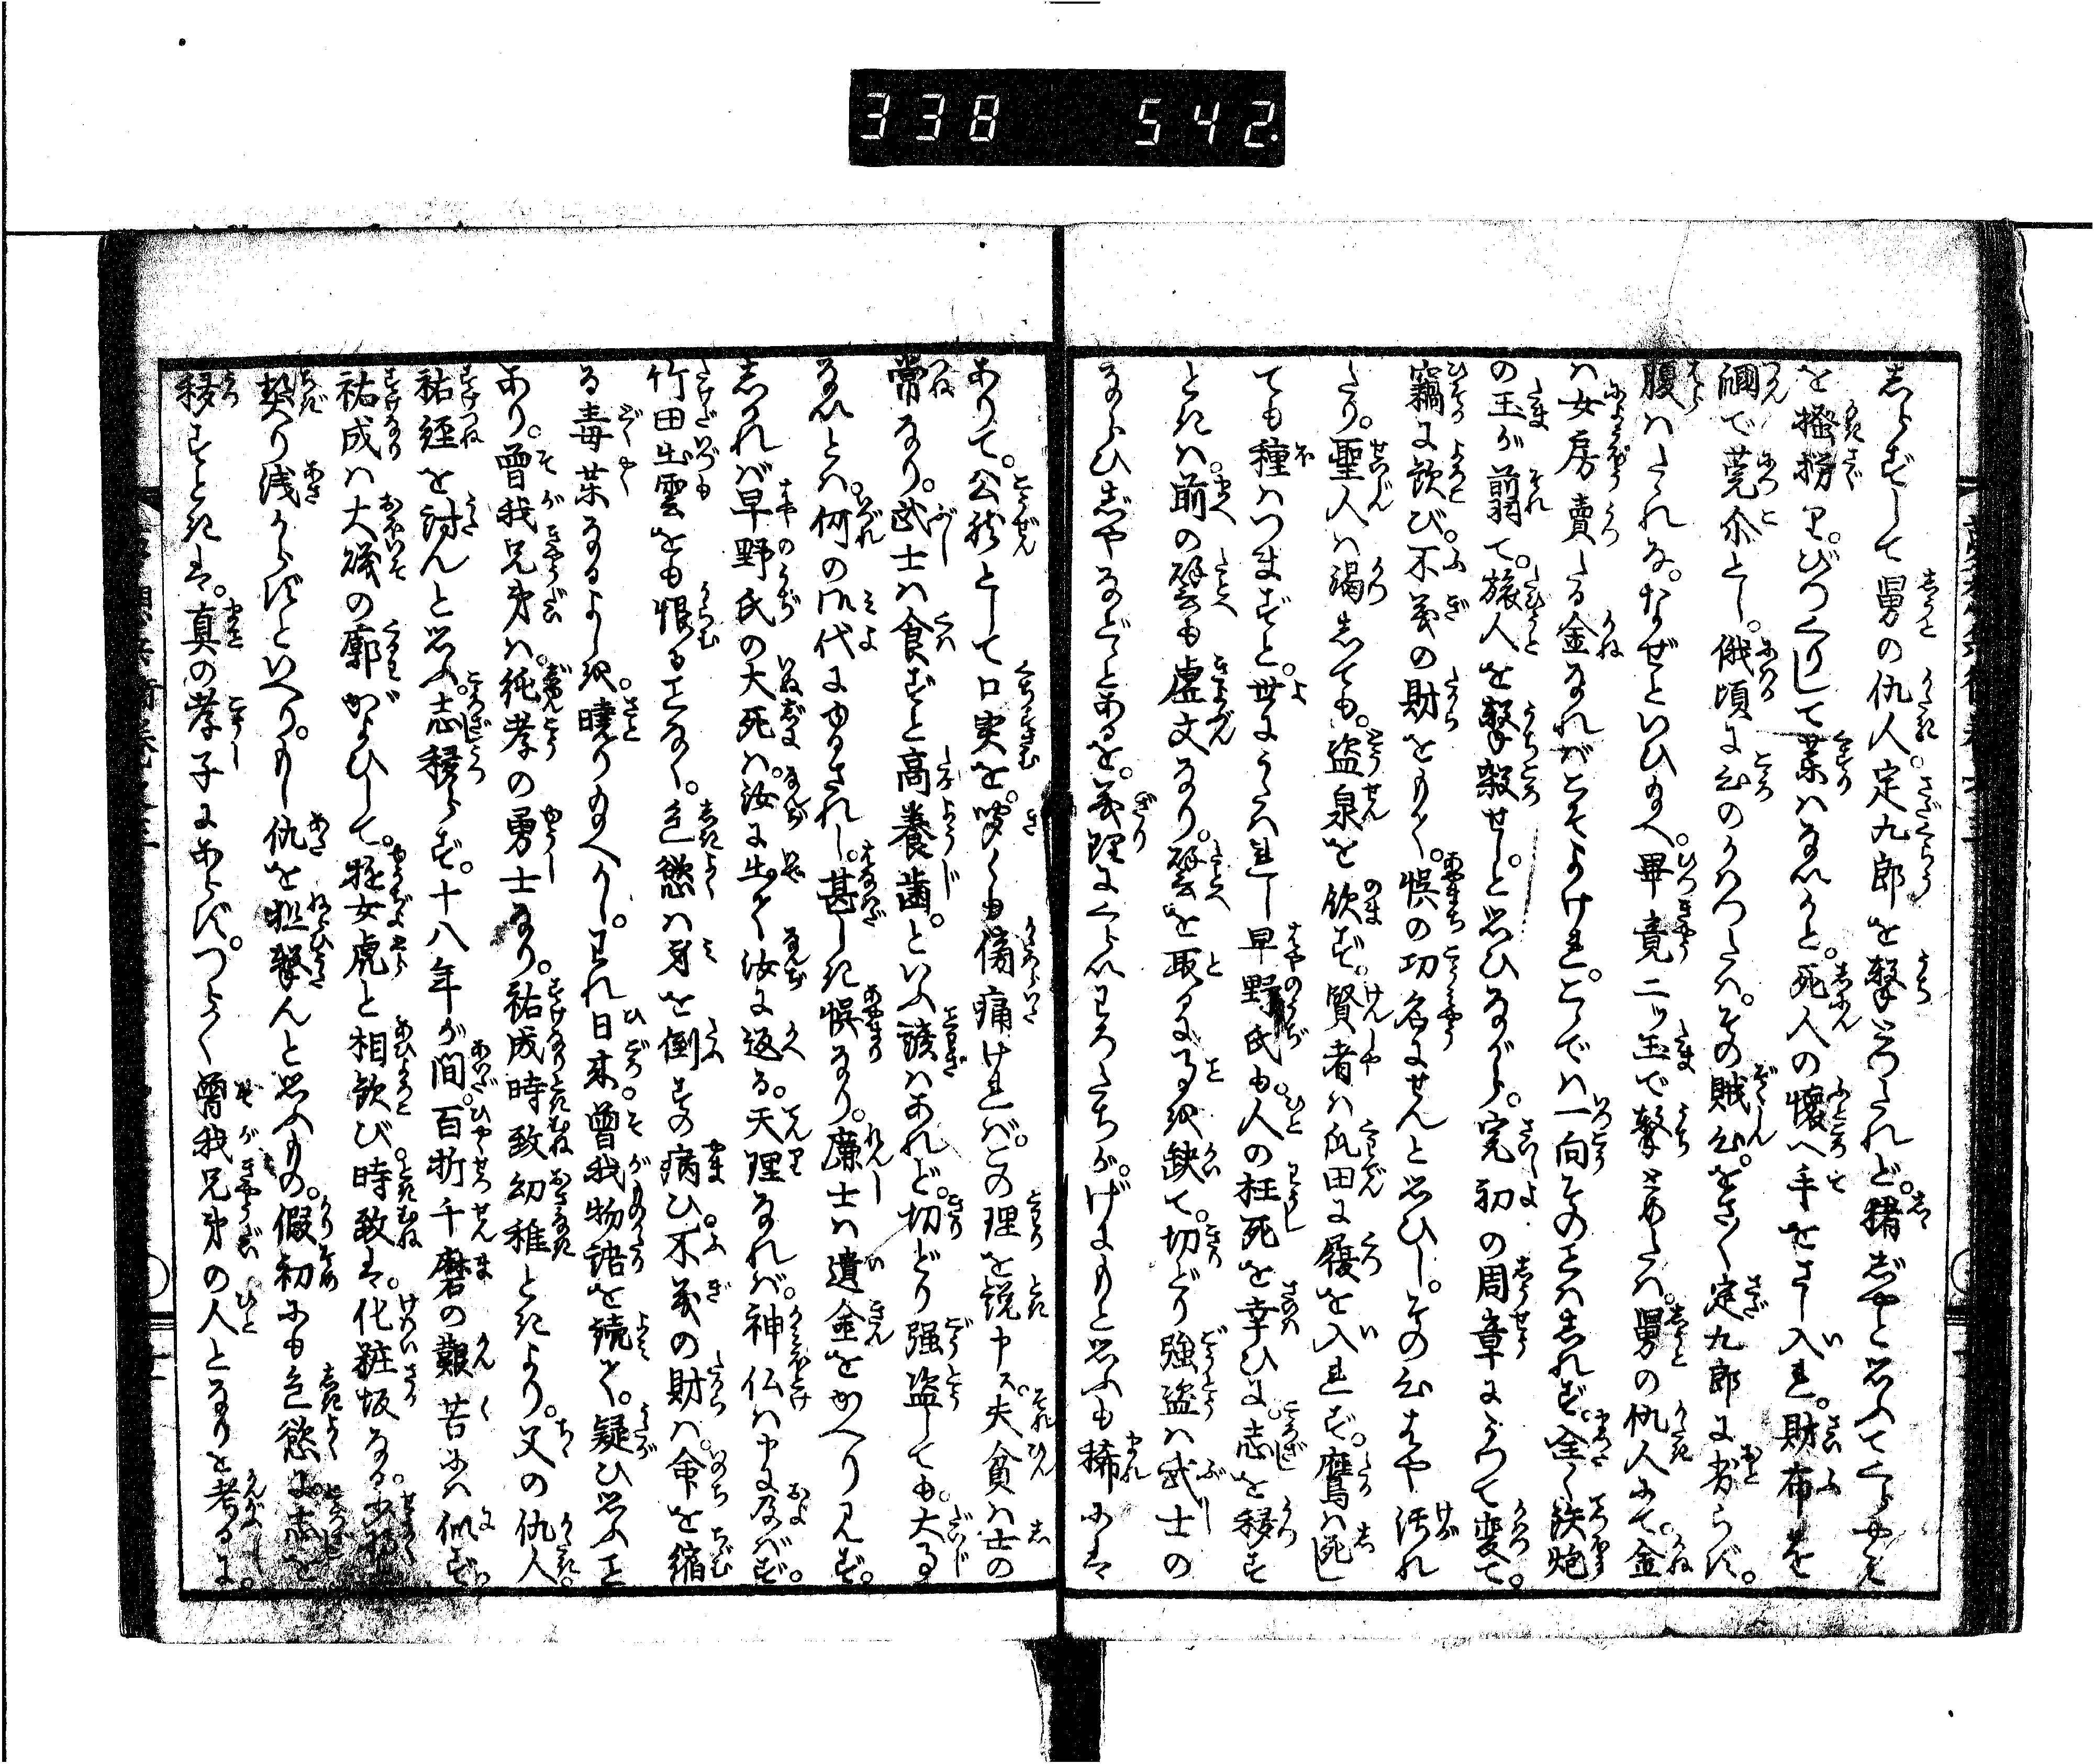 338 542.
しらずして舅の仇人。定九郎を撃とつたれど。猪じやと思ふてくらやみ
を掻撈り。びつくりして薬はないかと。死人の懐へ手をさし入れ。財布を
掴で莞尓とし。俄頃に心のかはつたは。その賊心。をさ〳〵定九郎に劣らず。
腹はたれな。なぜといひ給へ。畢竟二ッ玉で撃とめたは。舅の仇人にて。金
は女房賣たる金なればこそよけれ。こゝでは一向そのことはしれず。全く鉄炮
の玉が翦て。旅人を撃殺せしと思ひながら。最初の周章にかつて変て。
竊に歓び。不義の財をもて。悞の功名にせんと思ひし。その心はや汚れ
たり。聖人は渇しても。盗泉を飲ず。賢者は瓜田に履を入れず。鷹は死し
ても穂はつまずと。世にうたはれし早野氏も。人の枉死を幸ひに。志を移す
ときは。前の譬も虚文なり。譬を取るに事を缺て。切どり強盗は武士の
ならひじやなどゝあるを。義理にくらいわろたちが。げにもと思ふも稀には
ありて。公然として口実を。聞くも傍痛ければ。この理を説中ス。夫貧は士の
常なり。武士は食ずと高養歯。といふ諺はあれど。切どり强盗しても。大事
ないとは。何の御代にゆるされし。甚しき悞なり。廉士は遺金をかへり見ず。
しかれば早野氏の大死は。汝に出て汝に返る。天理なれば。神仏は中に及ばず。
竹田出雲をも恨ることなく。色慾は身を倒すの病ひ。不義の財は。命を縮
る毒薬なるよしを。曉り給へかし。われ日来。曽我物語を読て。疑ひ思ふこと
あり。曽我兄弟は。純孝の勇士なり。祐成時致幼稚ときより。父の仇人。
祐経を討んと思ふ。志移らず。十八年が間。百折千磨の艱苦には似ず
祐成は大礒の廓がよひして。遊女虎と相歓び時致は。化粧坂なる。少将
契り浅からずといへり。もし仇を狙撃んと思ふもの。假初にも色慾に。志を
移すときは。真の孝子にあらず。つら〳〵曽我兄弟の人となりを考るに。